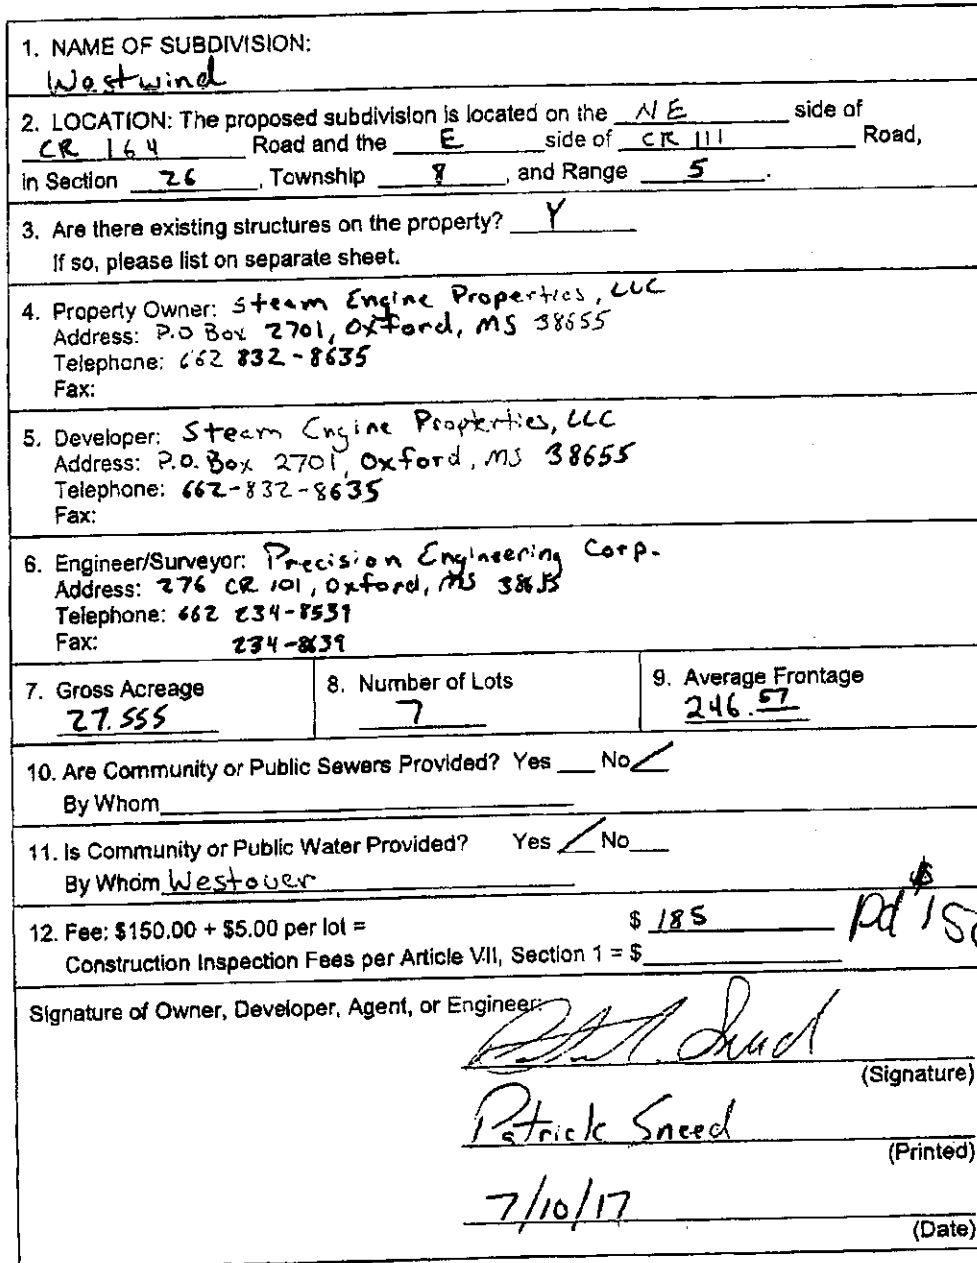 1. NAME OF SUBDIVISION:
Westwind
2. LOCATION: The proposed subdivision is located on the NE side of
CR 164 Road and the E side of CR 111 Road,
in Section 26, Township 8, and Range 5.
3. Are there existing structures on the property? Y
If so, please list on separate sheet.
4. Property Owner: Steam Engine Properties, LLC
Address: P.O Box 2701, Oxford, MS 38655
Telephone: 662 832-8635
Fax:
5. Developer: Steam Engine Properties, LLC
Address: P.O. Box 2701, Oxford, MS 38655
Telephone: 662-832-8635
Fax:
6. Engineer/Surveyor: Precision Engineering Corp.
Address: 276 CR 101, Oxford, MS 38655
Telephone: 662 234-8539
Fax: 234-8639
7. Gross Acreage 8. Number of Lots 9. Average Frontage
27.555 7 246.57
10. Are Community or Public Sewers Provided? Yes ___ No ✓
By Whom
11. Is Community or Public Water Provided? Yes ✓ No ___
By Whom Westover
12. Fee: $150.00 + $5.00 per lot = $ 185 pd $
Construction Inspection Fees per Article VII, Section 1 = $
Signature of Owner, Developer, Agent, or Engineer:
(Signature)
Patrick Sneed
(Printed)
7/10/17
(Date)